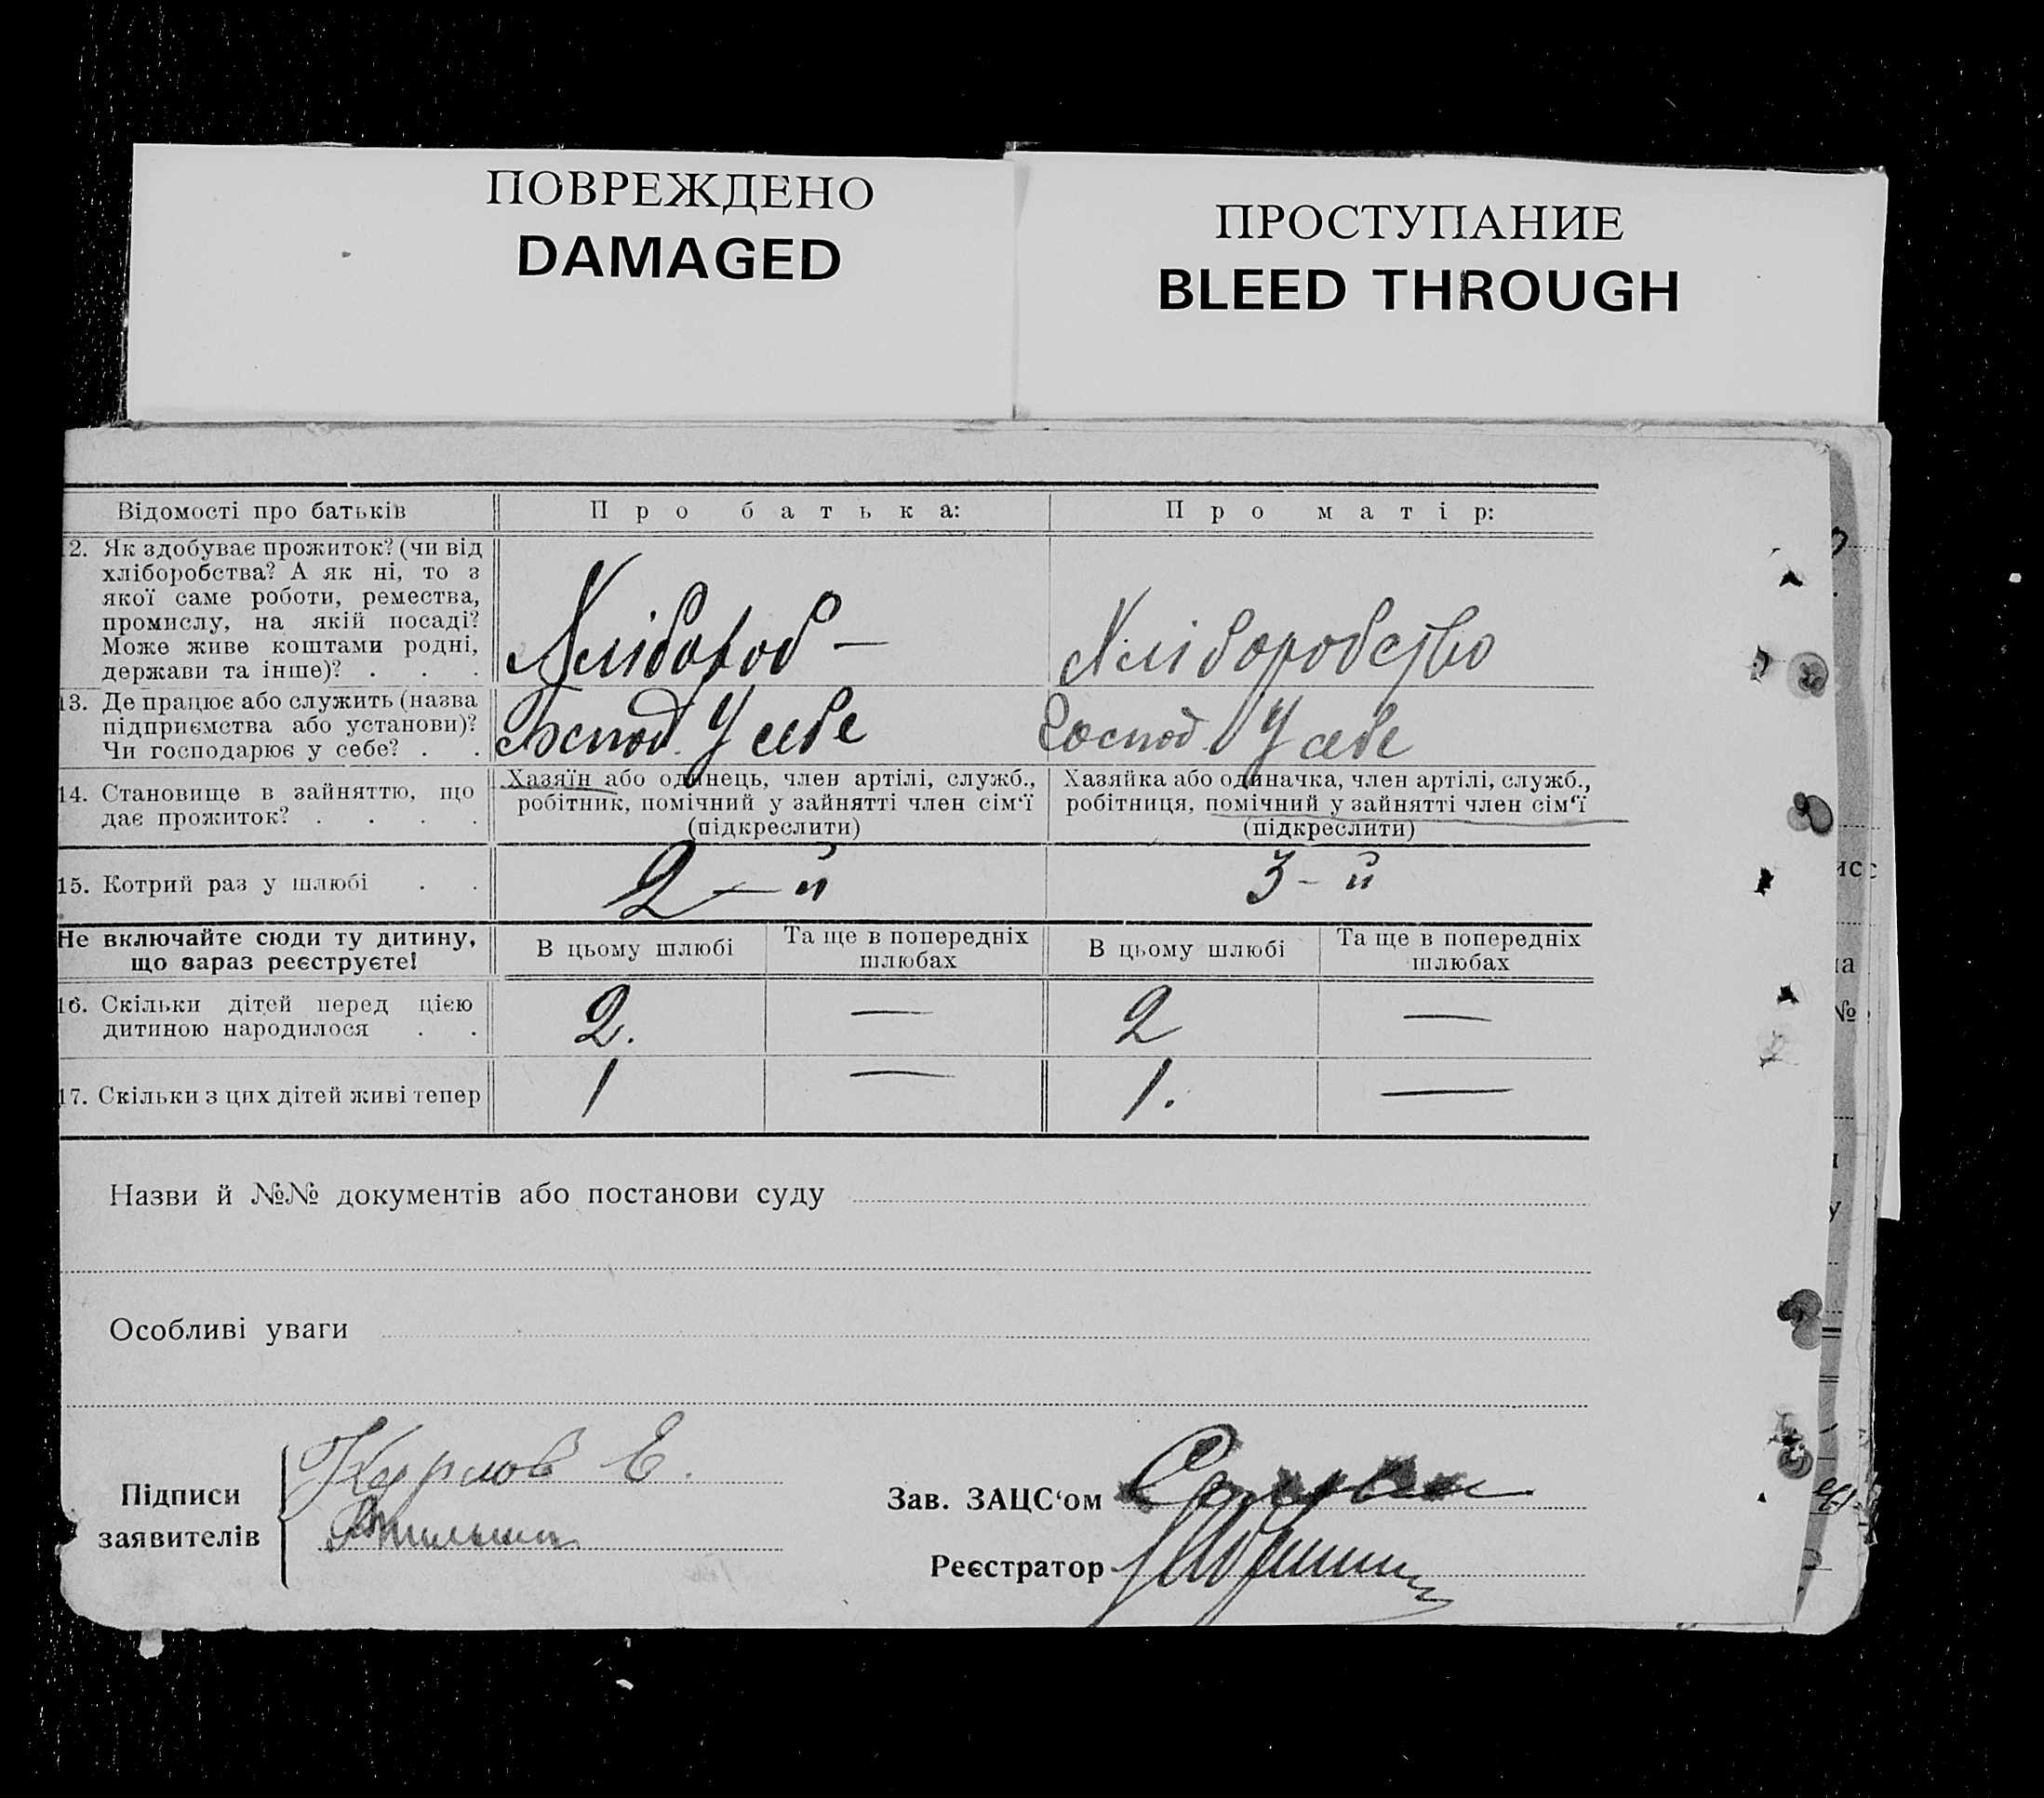 ПОВРЕЖДЕНО
DAMAGED
ПРОСТУПАНИЕ
BLEED THROUGH
Відомості про батьків
Про батька:
Про матір:
2. Як здобуває прожиток? (чи від
хліборобства? А як ні, то з
якої саме роботи, ремества,
промислу, на якій посаді?
Може живе коштами родні,
держави та інше)? . . .
Хлібороб —
Хліборобство
13. Де працює або служить (назва
підприємства або установи)?
Чи господарює у себе? . .
Господ. У себе
Господ. У себе
14. Становище в зайняттю, що
дає прожиток? . . . .
Хазяїн або одинець, член артілі, служб.,
робітник, помічний у зайнятті член сім‘ї
(підкреслити)
Хазяйка або одиначка, член артілі, служб.,
робітниця, помічний у зайнятті член сім‘ї
(підкреслити)
15. Котрий раз у шлюбі . .
2 — й
3 - й
Не включайте сюди ту дитину,
що зараз реєструєте!
В цьому шлюбі
Та ще в попередніх
шлюбах
В цьому шлюбі
Та ще в попередніх
шлюбах
16. Скільки дітей перед цією
дитиною народилося . .
2. — 2 —
17. Скільки з цих дітей живі тепер
1 — 1. —
Назви й №№ документів або постанови суду
Особливі уваги
Підписи
заявителів
Курлов Е.
Зав. ЗАЦС‘ом
Реєстратор